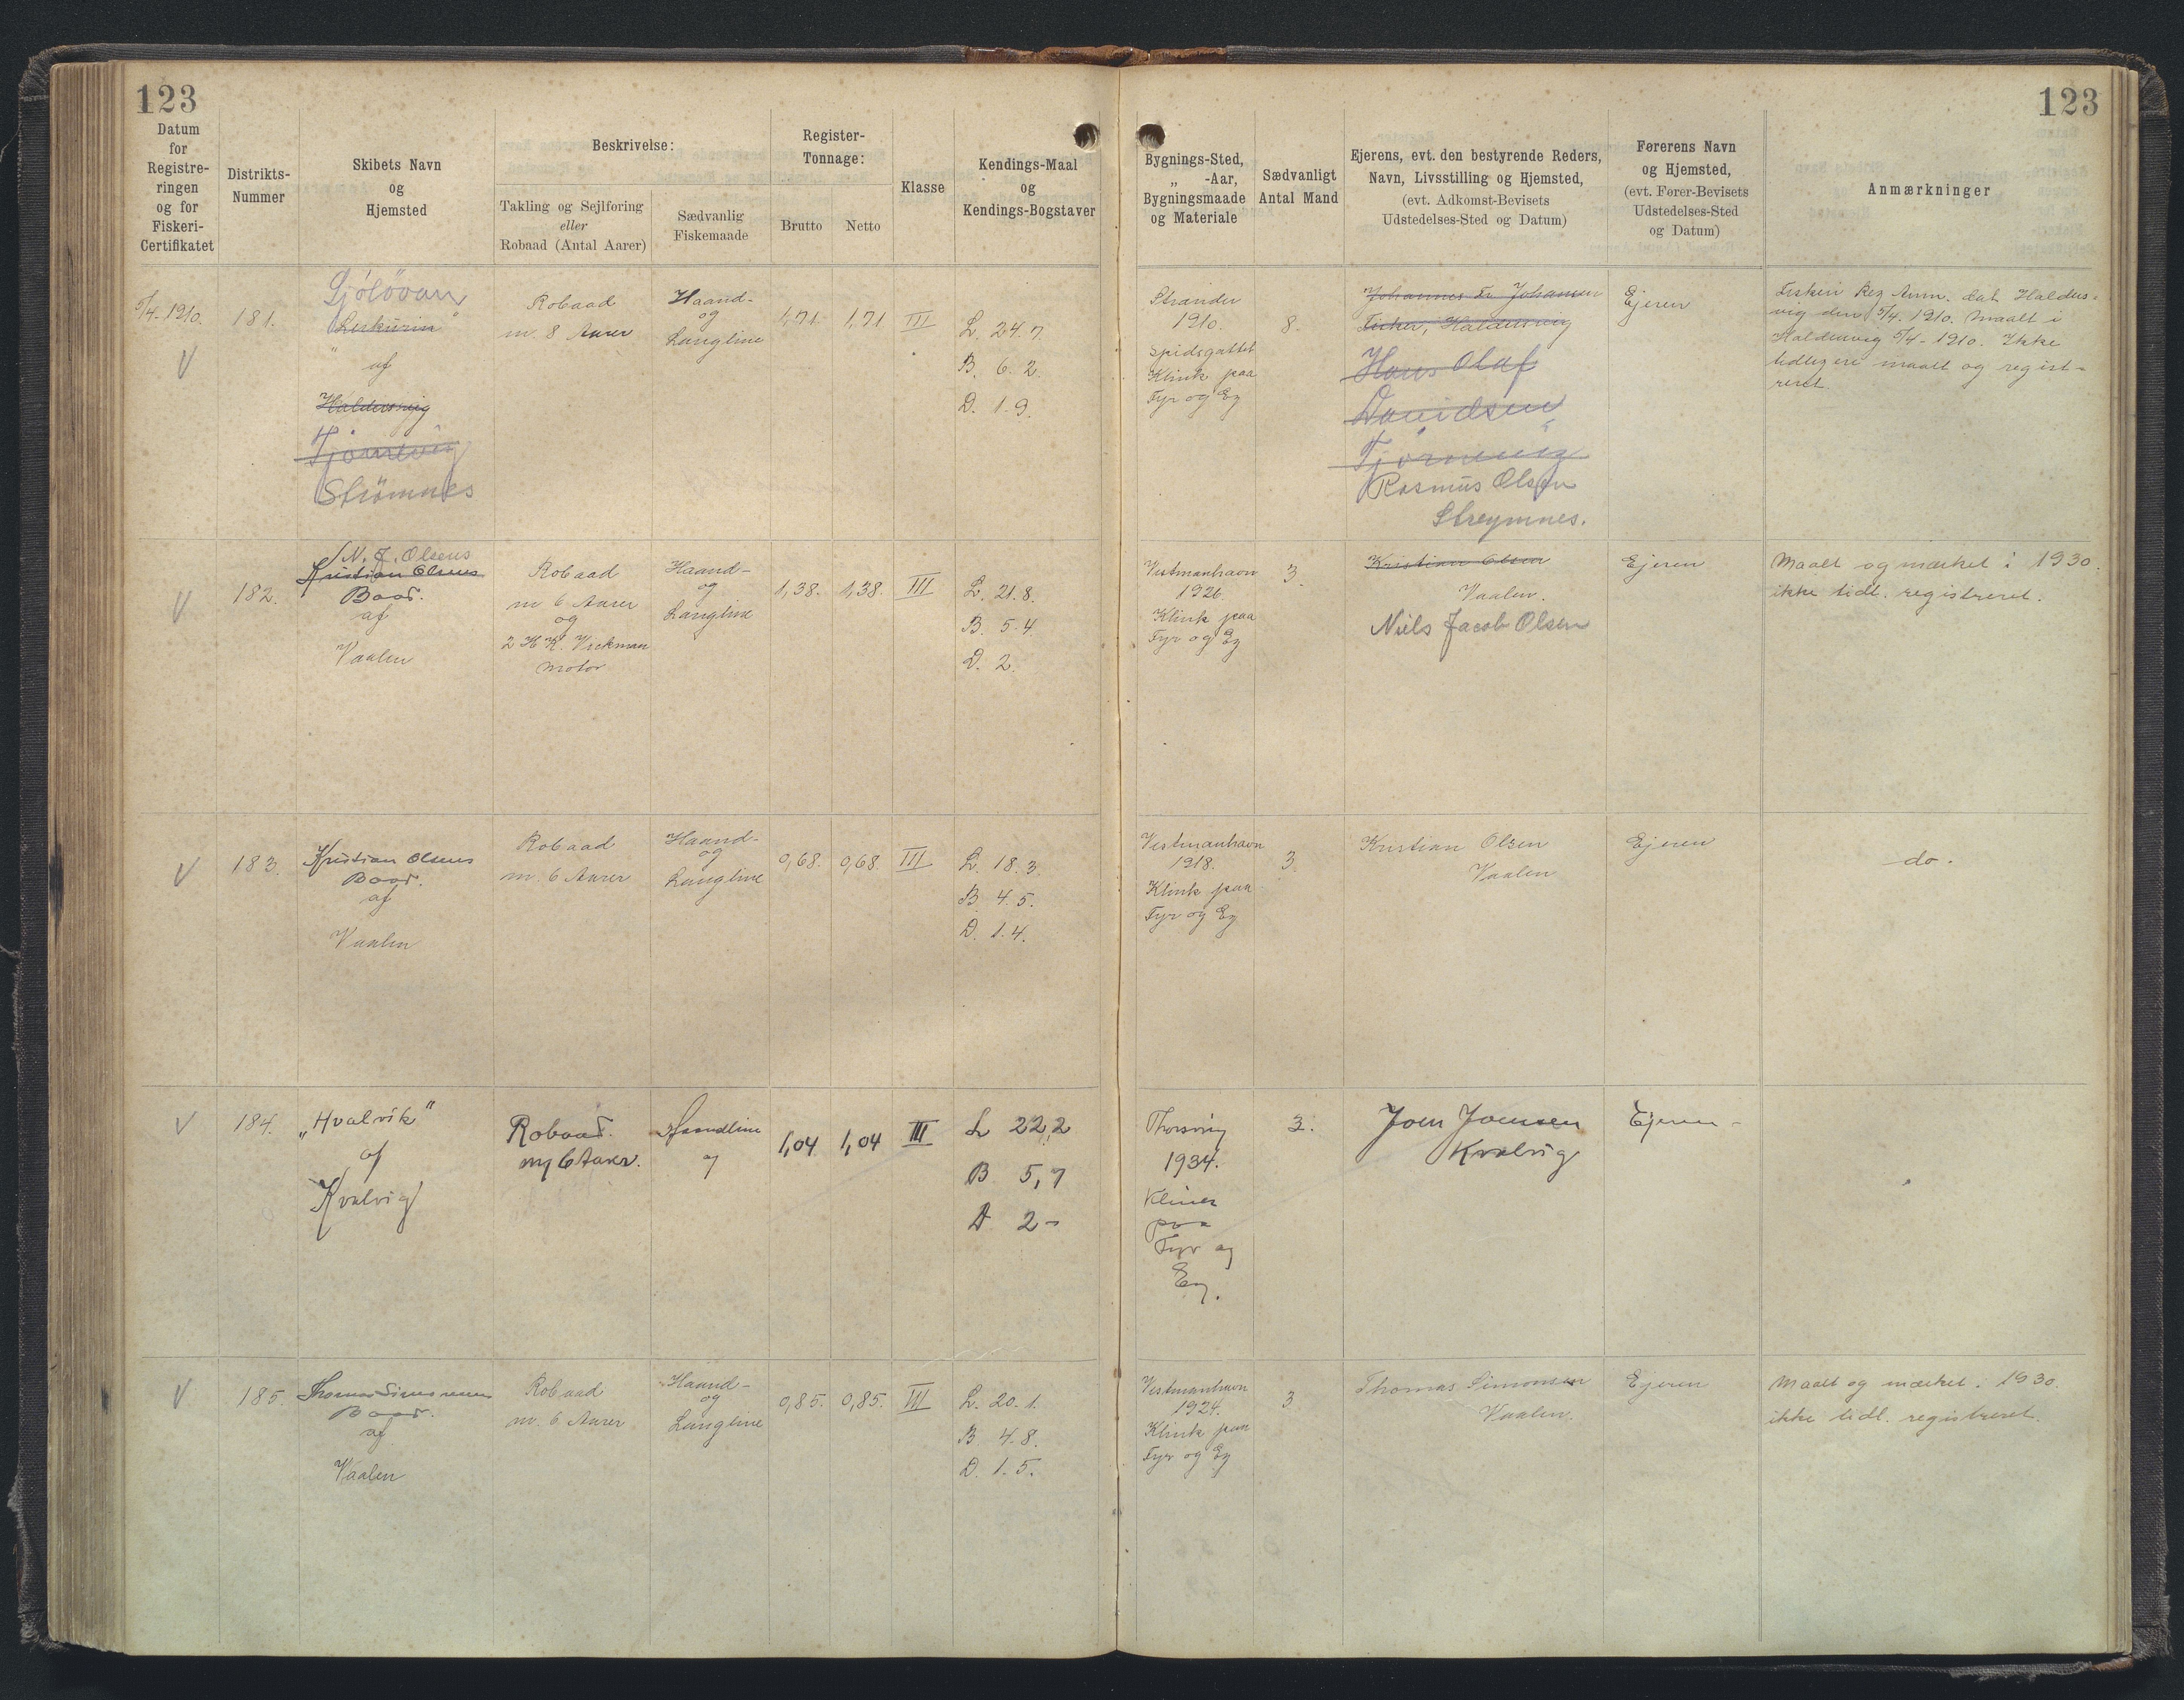 123
123
Datum
for
Registre-
ringen
og for
Fiskeri-
Certifikatet
Distrikts-
Nummer
Skibets Navn
og
Hjemsted
Beskrivelse:
Takling og Sejlføring
eller
Robaad (Antal Aarer)
Sædvanlig
Fiskemaade
Register-
Tonnage:
Brutto
Netto
Klasse
Kendings-Maal
og
Kendings-Bogstaver
Bygnings-Sted,
„ -Aar,
Bygningsmaade
og Materiale
Sædvanligt
Antal Mand
Ejerens, evt. den bestyrende Reders,
Navn, Livsstilling og Hjemsted,
(evt. Adkomst-Bevisets
Udstedelses-Sted og Datum)
Førerens Navn
og Hjemsted,
(evt. Fører-Bevisets
Udstedelses-Sted
og Datum)
Anmærkninger
5/4-1910.
V
181.
af
Haldersvig
Tjørnevig
Strömnes
Robaad
m. 8 Aarer
Haand-
og
Langline
1,71
1,71
III
L. 24.7.
B. 6.2.
D. 1.9.
Strander
1910.
Spidsgattet
Klink paa
Fyr og Eg
8.
Johannes Fr. Johansen
Fisker, Haldersvig
Hans Olaf
Davidsen
Tjørnevig
Rasmus Olsen
Streymnes.
Ejeren
Fiskeri Reg Anm. dat. Halders-
vig den 5/4. 1910. Maalt i
Haldersvig 5/4-1910. Ikke
tidligere maalt og regist-
reret.
V
182.
N. J. Olsens
Kristian Olsens
Baad.
af
Vaalen
Robaad
m 6 Aarer
og
2 H K.
Motor
Haand-
og
Langline
1,38.
1,38.
III
L. 21.8.
B. 5.4.
D. 2.
Vestmanhavn
1926.
Klink paa
Fyr og Eg
3.
Kristian Olsen
Vaalen.
Niels Jacob Olsen
Ejeren
Maalt og mærket i 1930.
ikke tidl. registreret.
V
183.
Kristian Olsens
Baad.
af
Vaalen
Robaad
m. 6 Aarer
Haand-
og
Langline
0,68.
0,68
III
L. 18.3.
B. 4.5.
D. 1.4.
Vestmanhavn
1918.
Klink paa
Fyr og Eg
3.
Kristian Olsen
Vaalen
Ejeren
do.
V
184.
„Hvalvik"
af
Kvalvig
Robaad.
m/ 6 Aarer.
Haandline
og
1,04
1,04
III
L 22,2
B 5,7
D 2-
Thorsvig
1934.
paa
Fyr og
Eg.
3.
Joen Joensen
Kvalvig
Ejeren-
V
185.
Thomas Simonsens
Baad.
af
Vaalen
Robaad
m. 6 Aarer
Haand-
og
Langline
0,85.
0,85.
III
L. 20.1.
B. 4.8.
D. 1.5.
Vestmanhavn
1924.
Klink paa
Fyr og Eg
3.
Thomas Simonsen
Vaalen.
Ejeren
Maalt og mærket i 1930.
ikke tidl. registreret.